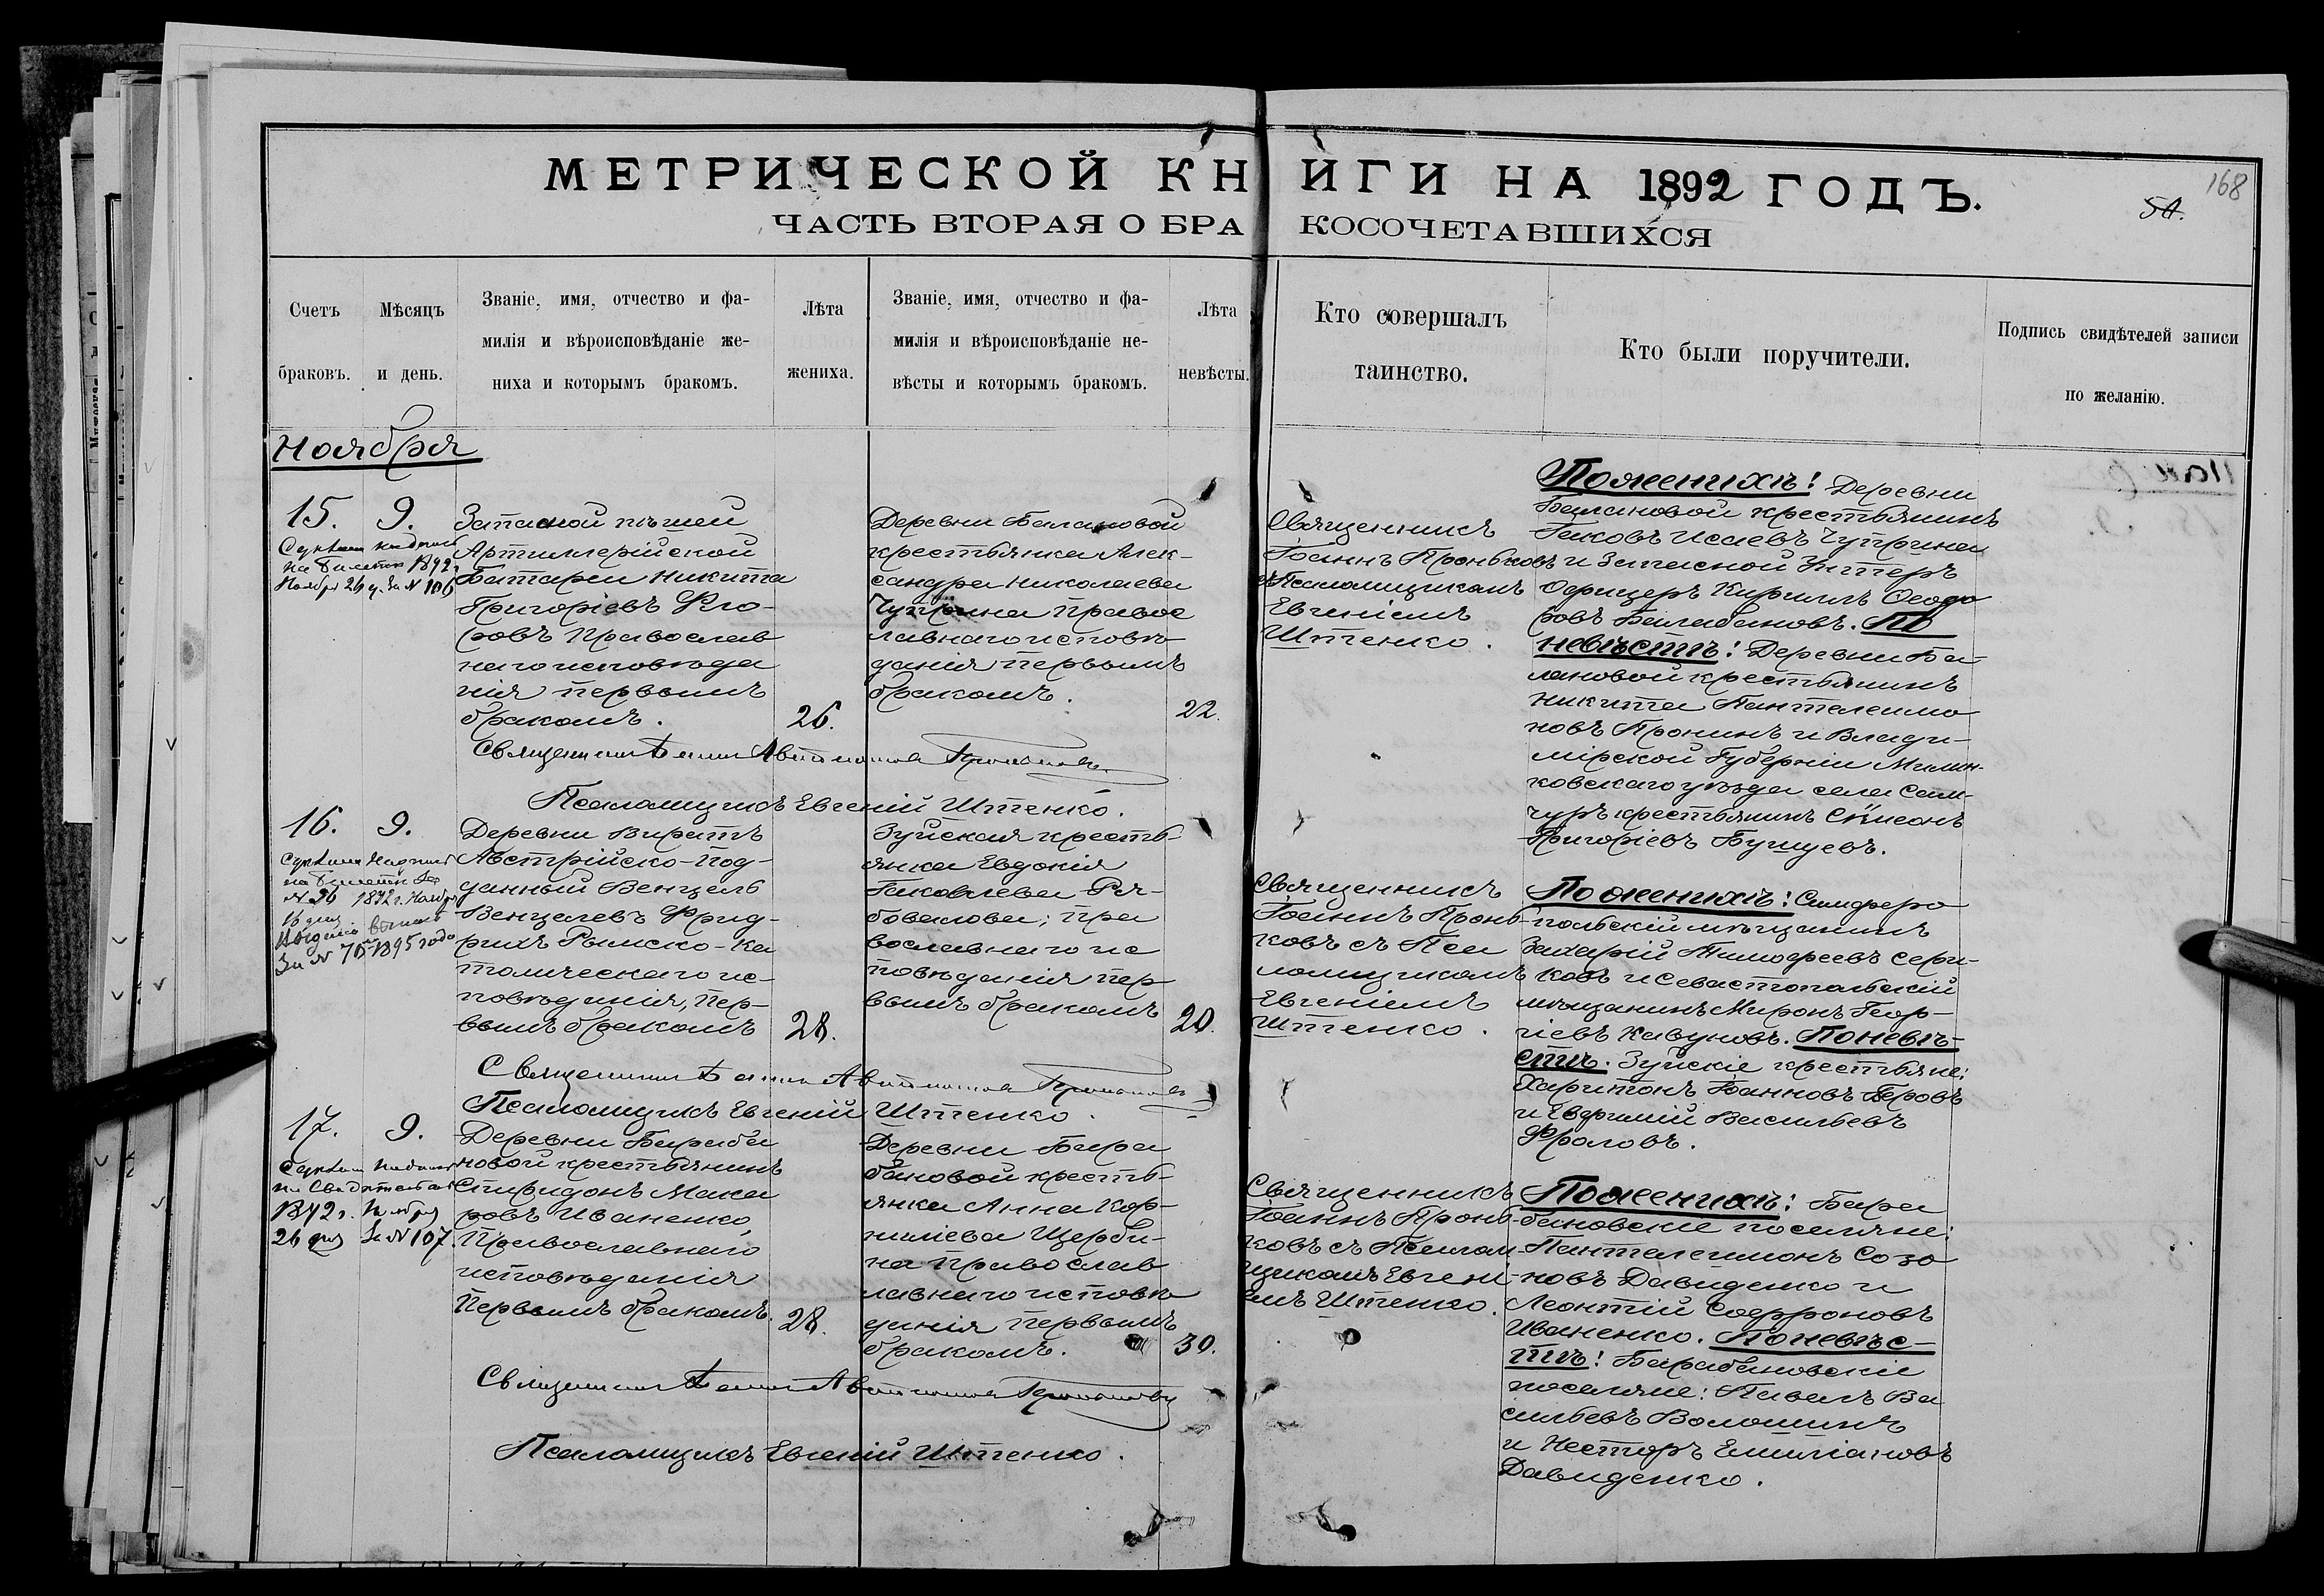 МЕТРИЧЕСКОЙ КНИГИ НА 1892 ГОДЪ.
168
54.
ЧАСТЬ ВТОРАЯ О БРАКОСОЧЕТАВШИХСЯ
Счетъ
браковъ.
Мѣсяцъ
и день.
Званіе, имя, отчество и фа-
милія и вѣроисповѣданіе же-
ниха и которымъ бракомъ.
Лѣта
жениха.
Званіе, имя, отчество и фа-
милія и вѣроисповѣданіе не-
вѣсты и которымъ бракомъ.
Лѣта
невѣсты.
Кто совершалъ
таинство.
Кто были поручители.
Подпись свидѣтелей записи
по желанію.
Ноября
15. 9.
на билетѣ 1892 г.
Ноября 26 д. За № 106
Запасной пѣшей
Артиллерійской
Батареи Никита
Григоріевъ Фло-
ровъ Православ
наго исповѣда
нія первымъ
бракомъ.
26.
Деревни Балановой
крестьянка Алек-
сандра Николаева
Чуприна Правос
лавнаго исповѣ
данія первымъ
бракомъ.
22.
Священникъ
Іоаннъ Проньковъ
съ Псаломщикомъ
Евгеніемъ
Штенко.
По женихѣ: Деревни
Балановой крестьянинъ
Іаковъ Исаевъ Чуприна
и Запасной Унтеръ
Офицеръ Кириллъ Ѳеодо
ровъ Балабановъ. По
невѣстѣ: Деревни Ба
лановой крестьянинъ
Никита Пантелеимо
новъ Пронинъ и Влади-
мірской Губерніи Милин-
ковскаго уѣзда села Сам-
чуръ крестьянинъ Симеонъ
Григоріевъ Бушуевъ.
Священникъ Іоаннъ Автономовъ Проньковъ
Псаломщикъ Евгеній Штенко.
16. 9.
на билетѣ За
№ 26 1892 г. Ноября
16 дня
За № 70 1895 года
Деревни Виратъ
Австрійско-Под-
данный Венцель
Венцелевъ Фрид-
рихъ Римско-Ка
толическаго ис-
повѣданія, Пер-
вымъ бракомъ
28.
Зуйская кресть-
янка Евдокія
Іаковлева Ря-
бовалова; Пра
вославнаго ис
повѣданія пер
вымъ бракомъ
20.
Священникъ
Іоаннъ Пронь-
ковъ съ Пса
ломщикомъ
Евгеніемъ
Штенко.
По женихѣ: Симферо
польскій мѣщанинъ
Захарій Тимофеевъ Сери-
ковъ и Севастопольскій
мѣщанинъ Миронъ Геор-
гіевъ Кавуновъ. По невѣ-
стѣ. Зуйскіе крестьяне:
Харитонъ Іоанновъ Перовъ
и Евфимій Васильевъ
Фроловъ.
Священникъ Іоаннъ Автономовъ Проньковъ
Псаломщикъ Евгеній Штенко.
17. 9.
на Свидѣтельствѣ
1892 г. Ноября
26 дня За № 107.
Деревни Бараба
новой крестьянинъ
Спиридонъ Мака
ровъ Иваненко,
Православнаго
исповѣданія
Первымъ бракомъ.
28.
Деревни Бара
бановой кресть-
янка Анна Кор-
ниліева Щерби-
на Православ
лавнаго исповѣ
данія первымъ
бракомъ.
30.
Священникъ
Іоаннъ Пронь-
ковъ съ Псалом-
щикомъ Евгені-
емъ Штенко.
По женихѣ: Бара
бановскіе поселяне:
Пантелеимонъ Созо
новъ Давиденко и
Леонтій Софроновъ
Иваненко. По невѣс-
тѣ: Барабановскіе
поселяне: Павелъ Ва
сильевъ Волошинъ
и Несторъ Емиліановъ
Давиденко.
Священникъ Іоаннъ Автономовъ Проньковъ
Псаломщикъ Евгеній Штенко.